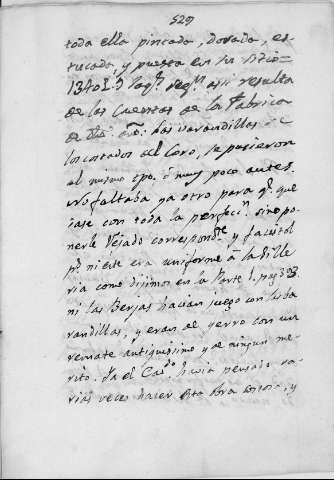 529
toda ella pintada, dorada, es-
tucada, y puesta en su sitio
13401. 9 seg.n assi resulta
de las Cuentas de la Fabrica
de dho año: Las varandillas de
los costados del Coro, se pusieron
al mismo tpo. ó muy poco antes.
No faltaba ya otro para q.e que
dase con toda la perfecc.n sino po
nerle Vejado correspond.te y facistol
p.s ni este era uniforme á la sille
ria como dijimos en la Parte 1. pag 303
ni las Berjas hacian juego con las ba
randillas, y eran de yerro con un
remate antiquissimo y de ningun me-
rito. Ya el Cav.do havia pensado va-
rias veces hacer esta obra, y